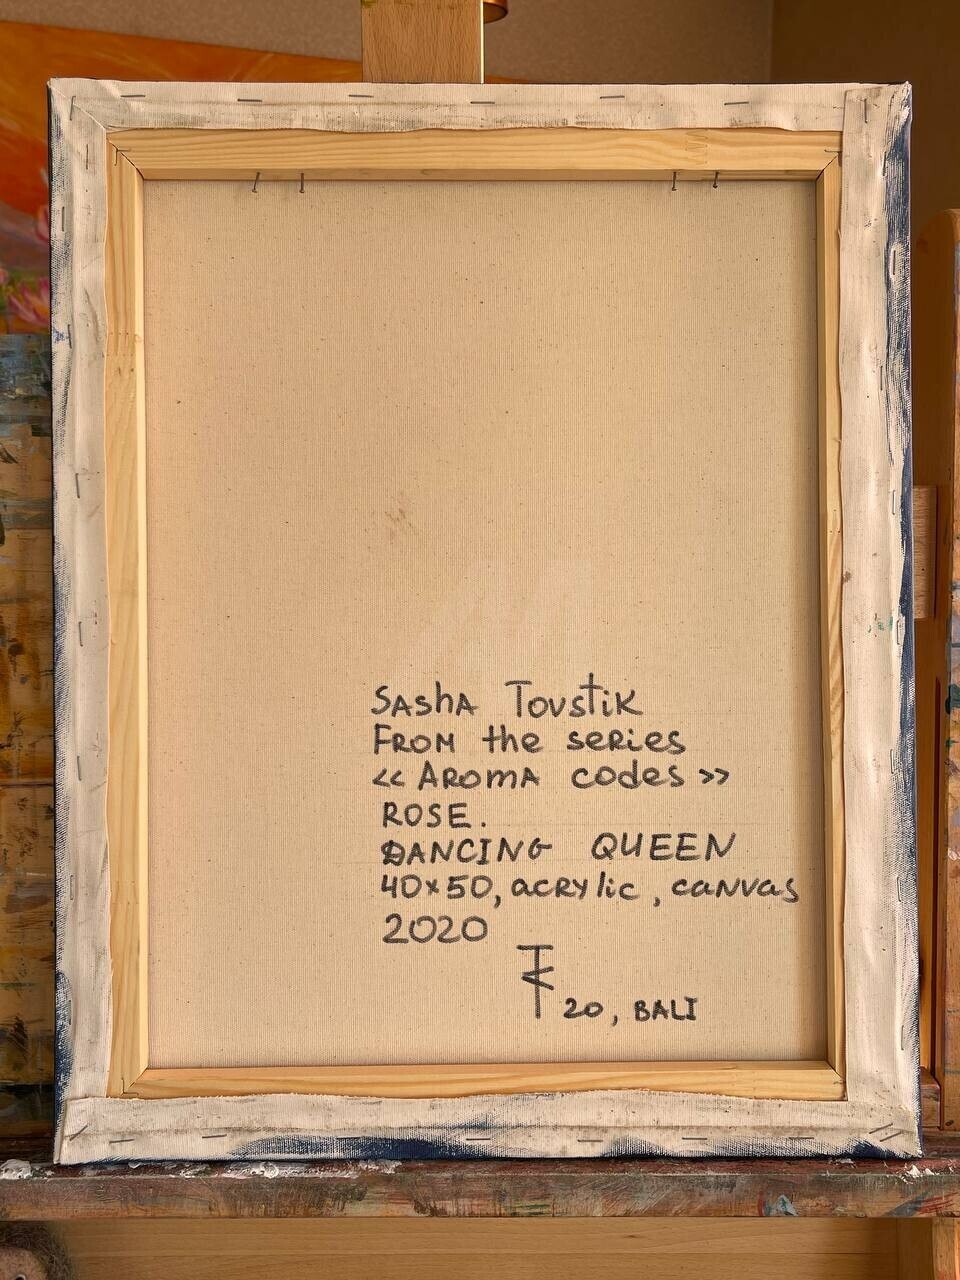 SAShA TovstiK
FROM the series
«AROMA codes»
ROSE.
DANCING QUEEN
40x50, acrylic, canvas
2020
20, BALI